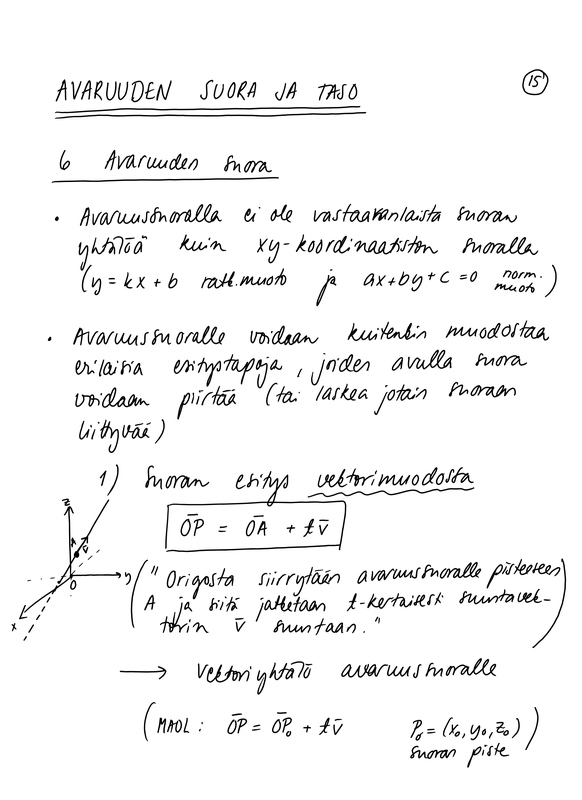 AVARUUDEN SUORA JA TASO
15
6 Avaruuden suora
• Avaruussuoralla ei ole vastaavanlaista suoran
yhtälöä kuin xy-koordinaatiston suoralla
(y = kx + b ratk.muoto ja ax + by + c = 0 norm. muoto)
• Avaruussuoralle voidaan kuitenkin muodostaa
erilaisia esitystapoja, joiden avulla suora
voidaan piirtää (tai laskea jotain suoraan
liittyvää)
1) Suoran esitys vektorimuodosta
O̅P̅ = O̅A̅ + t v̅
z
A
v̅
y
O
x
("Origosta siirrytään avaruussuoralle pisteeseen
A ja siitä jatketaan t-kertaisesti suuntavek-
torin v̅ suuntaan.")
→ Vektoriyhtälö avaruussuoralle
(MAOL: O̅P̅ = O̅P̅₀ + t v̅ P₀ = (x₀, y₀, z₀))
suoran piste